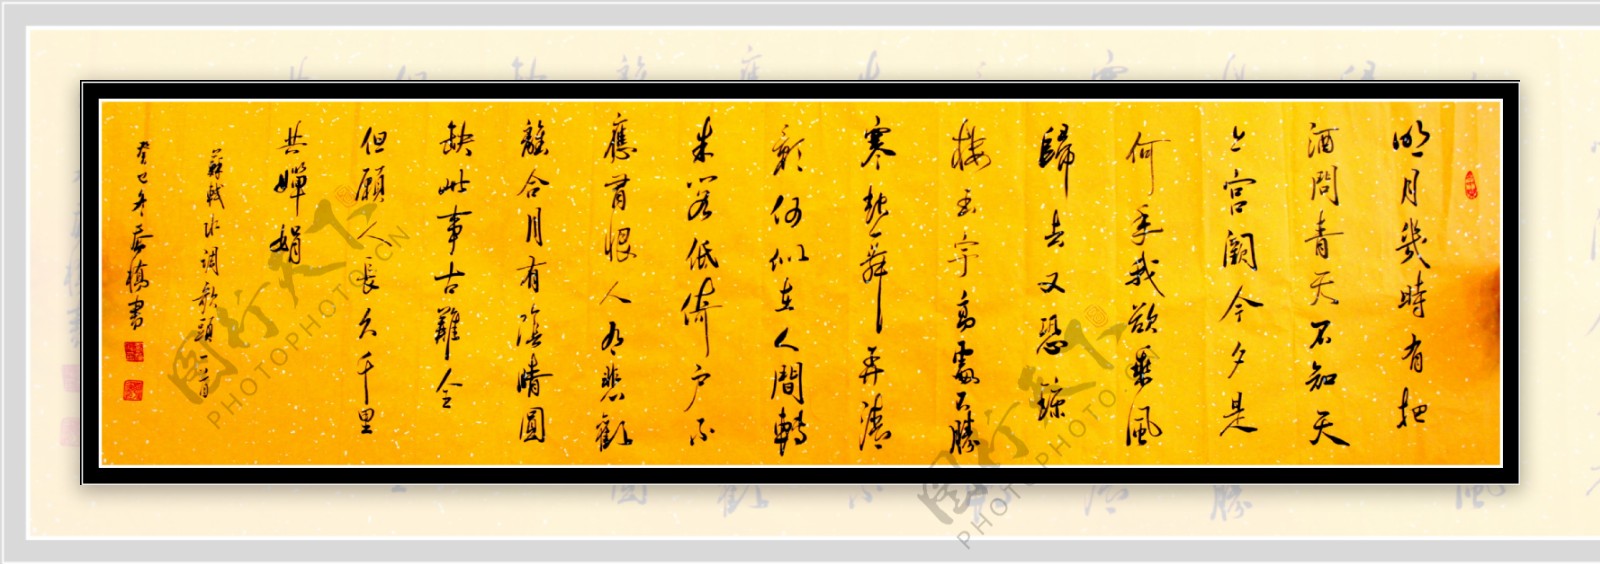 明月幾時有把
酒問青天不知天
上宮闕今夕是
何年我欲乘風
歸去又恐瓊
樓玉宇高處不勝
寒起舞弄清
影何似在人間轉
朱閣低綺户不
應有恨人有悲歡
離合月有陰晴圓
缺此事古難全
但願人長久千里
共嬋娟
蘇軾水調歌頭一首
癸巳冬書
图行天下
PHOTOPHOTO.CN
图行天下
PHOTOPHOTO.CN